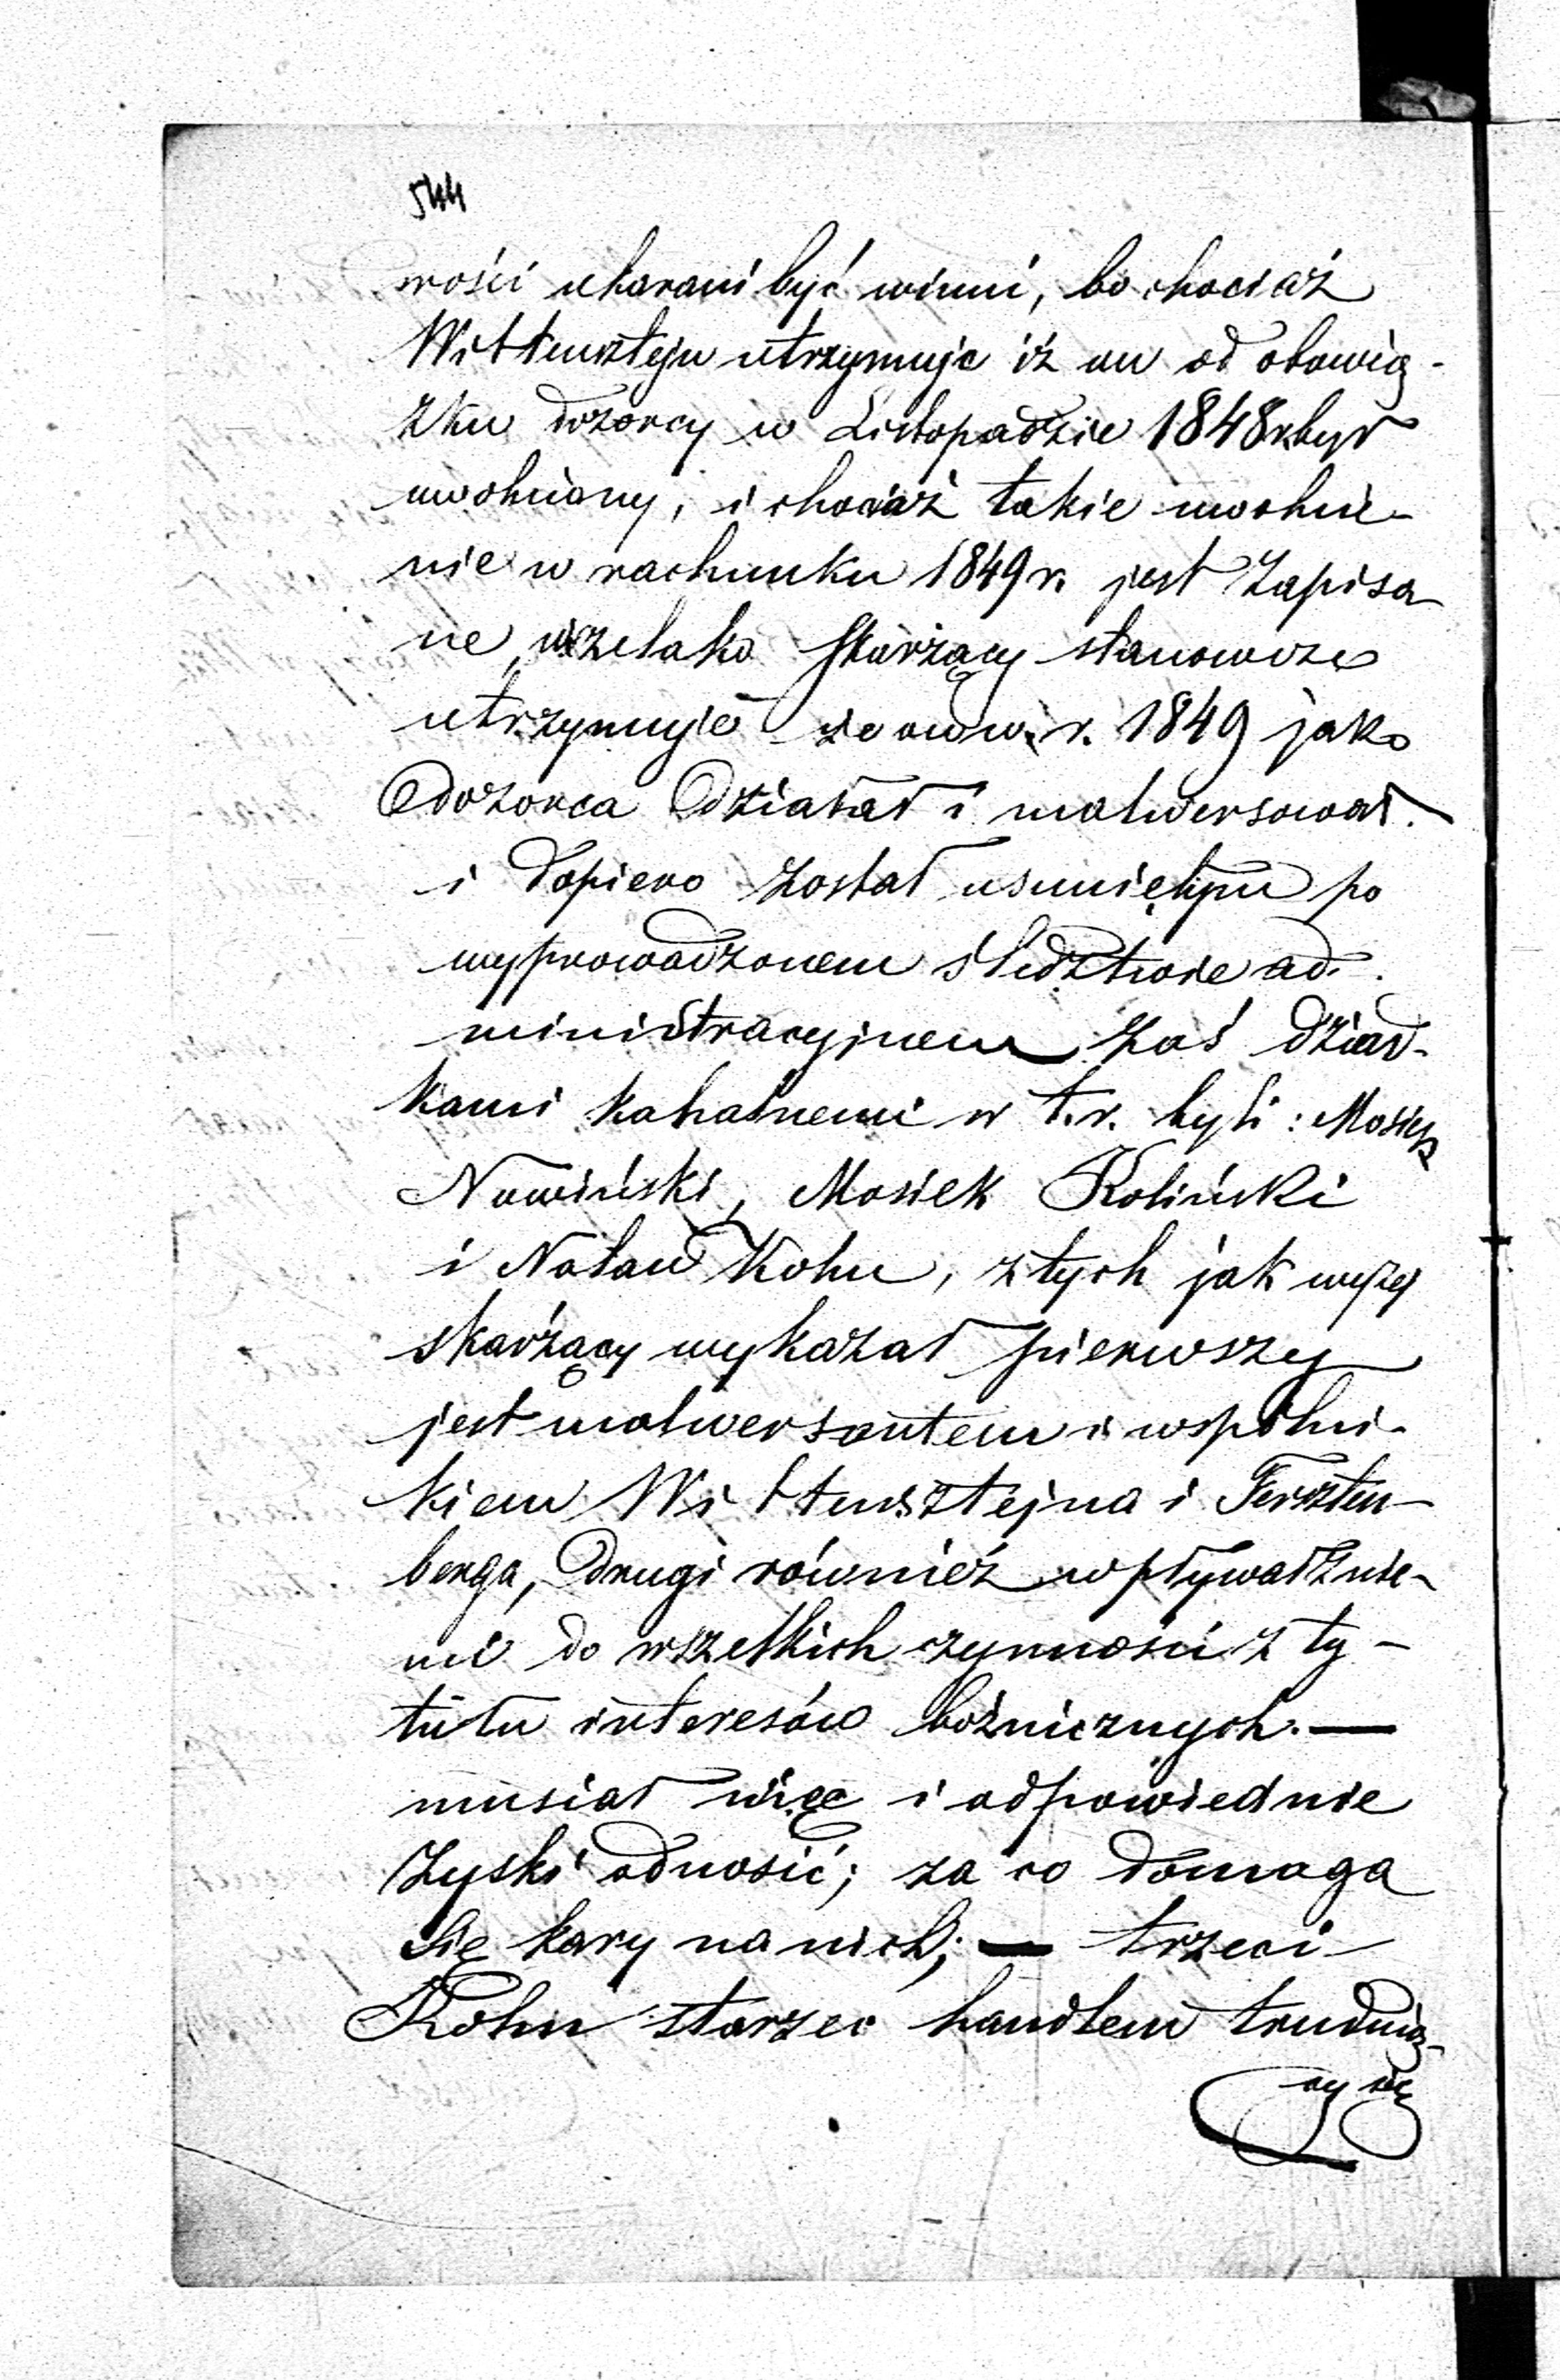 544
wości ukarani być winni, bo chociaż
Wittensztejn utrzymuje iż on od obowią-
zku dozorcy w Listopadzie 1848 r. był
uwolniony, i chociaż takie uwolnie-
nie w rachunku 1849 r. jest zapisa-
ne, wszelako skarżący stanowczo
utrzymuje że on w r. 1849 jako
dozorca działał i malwersował.
i dopiero został usunięty po
wyprowadzonem śledztwie ad-
ministracyjnem zaś dziad-
kami kahalnemi w t. r. byli: Mosiek
Nowiński, Mosiek Koliński
i Natan Kohn, z tych jak wyżej
skarżący wykazał pierwszy
jest malwersantem i wspólni-
kiem Wittensztejna i Ferszten-
berga, drugi również wpływał z nie-
mi do wszelkich czynności z ty-
tułu interesów bożnicznych. —
musiał więc i odpowiednie
zyski odnosić; za co domaga
się kary na nich; — trzeci
Kohn starzec handlem trudnią-
cy się